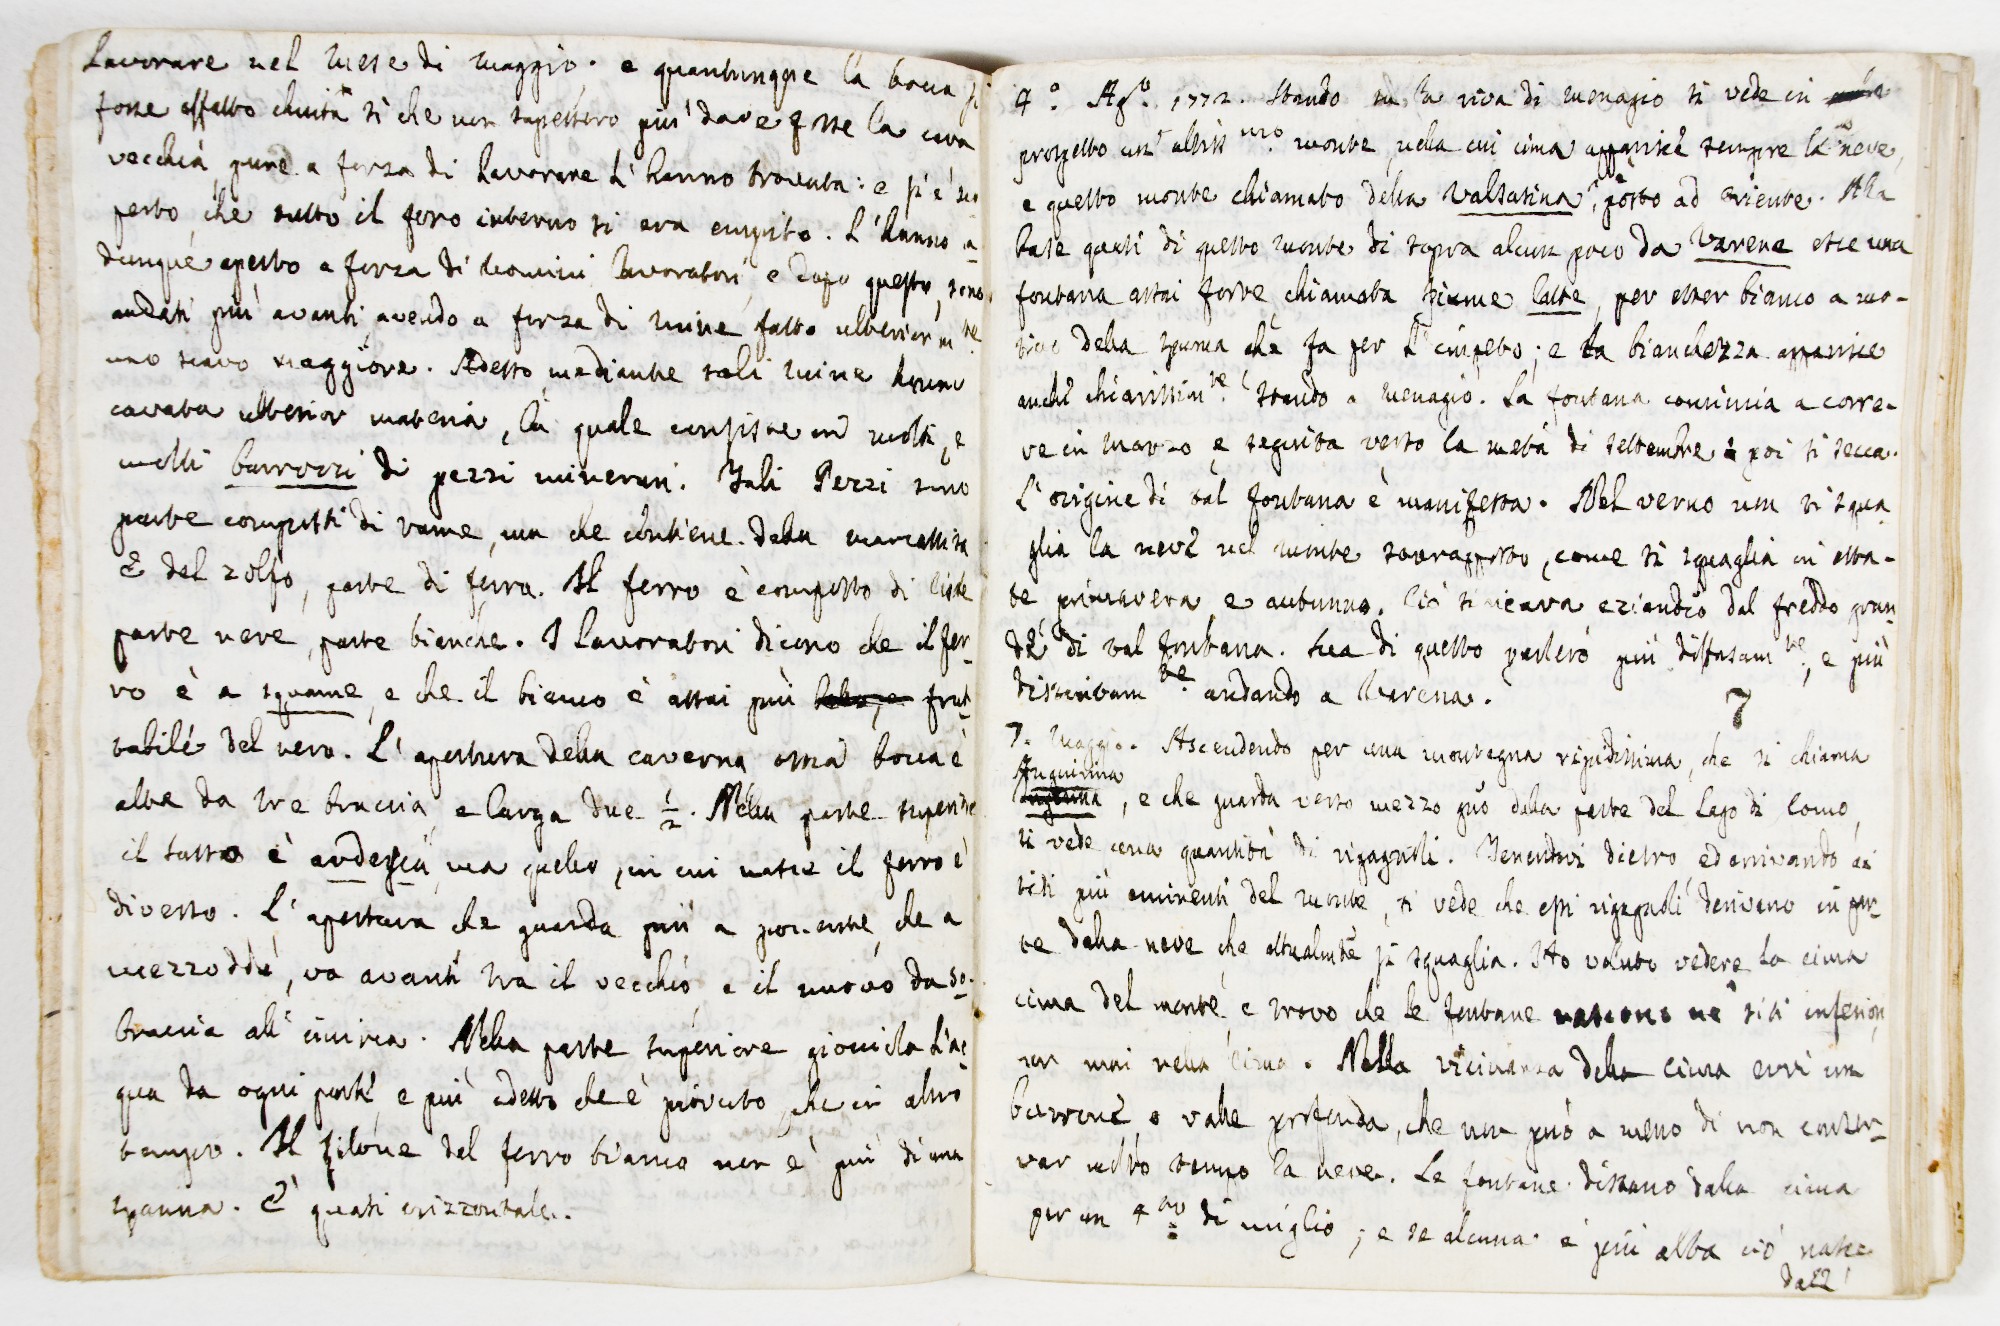 Lavorare nel Mese di Maggio. e quantunque la bocca si
fosse affatto chiusa sì che non sapessero più dove fosse la cava
vecchia, pure a forza di lavorare l'hanno trovata: e si è sco-
perto, che tutto il foro interno si era empito. L'hanno a-
dunque aperto a forza di uomini lavoratori, e dopo questo, sono
andati più avanti, avendo a forza di mine fatto ulteriorm.te
uno scavo maggiore. Adesso mediante tali mine hanno
cavata ulterior materia, la quale consiste in molti, e
molti barrozzi di pezzi minerari. Tali Pezzi sono
parte composti di rame, ma che contiene della marcassita
e del zolfo, parte di ferro. Il ferro è composto di liste
parte nere, parte bianche. I Lavoratori dicono che il fer-
ro è a squame, e che il bianco è assai più frut-
tabile del nero. L'apertura della caverna ossia bocca è
alta da tre braccia, e larga due 1/2. Nella parte superiore
il sasso è , ma quello, in cui nasce il ferro è
diverso. L'apertura che guarda più a ponente, che a
mezzoddì, va avanti tra il vecchio e il nuovo da 50.
braccia all'incirca. Nella parte superiore gocciola l'ac-
qua da ogni parte, e più adesso che è piovuto, che in altro
tempo. Il filone del ferro bianco non è più di una
spanna. È quasi orizzontale.
4.° Ag.to 1772. Stando su la riva di Menagio si vede in
prospetto un altiss.mo monte, nella cui cima apparisce sempre la neve,
e questo monte chiamato della Valsasina, è posto ad oriente. Alla
base quasi di questo monte di sopra alcun poco da Varena esce una
fontana assai forte, chiamata fiume latte, per esser bianco a mo-
tivo della spuma che fa per l'impeto; e la bianchezza apparisce
anche chiarissim.te stando a Menagio. La fontana comincia a corre-
re in Marzo e seguita verso la metà di settembre e poi si secca.
L'origine di tal fontana è manifesta. Nel verno non si squa-
glia la neve nel monte sovrapposto, come si squaglia in esta-
te primavera e autunno. Ciò si ricava eziandio dal freddo gran-
de di tal fontana. Ma di questo parlerò più diffusam.te, e più
distintam.te andando a Varena.
7
7. Maggio. Ascendendo per una montagna ripidissima, che si chiama
, e che guarda verso mezzo giò dalla parte del Lago di Como,
si vede una quantità di rigagnoli. Tenendovi dietro, ed arrivando ai
siti più eminenti del monte, si vede che essi rigagnoli derivano in par-
te dalla neve che attualmte si squaglia. Ho voluto vedere la cima
cima del monte, e trovo che le fontane nascono ne' siti inferiori,
non mai nella cima. Nella vicinanza della cima evvi un
burrone o valle profonda, che non può a meno di non conser-
var molto tempo la neve. Le fontane distano dalla cima
per un 4.to di miglio; e se alcuna è più alta ciò nasce
dall'